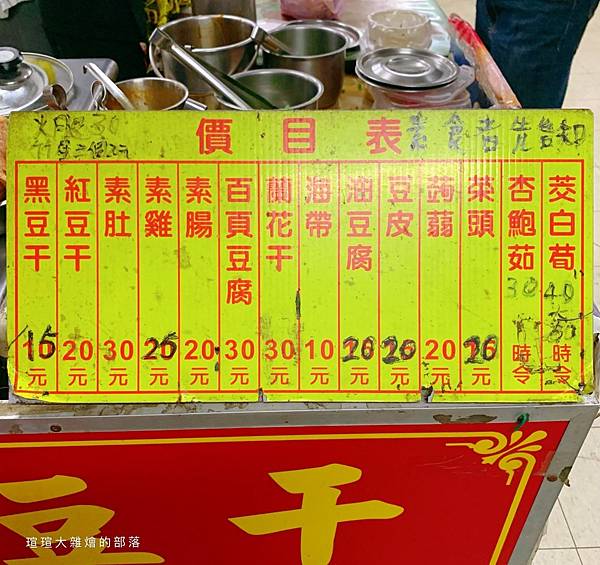 價目表 素食者先告知
黑豆干 15元
紅豆干 20元
素肚 30元
素雞 25元
素腸 20元
百頁豆腐 30元
蘭花干 30元
海帶 10元
油豆腐 20元
豆皮 20元
蒟蒻 20元
菜頭 20元
杏鮑茹 30 時令
茭白荀 40 時令
豆干
瑄瑄大雜燴的部落